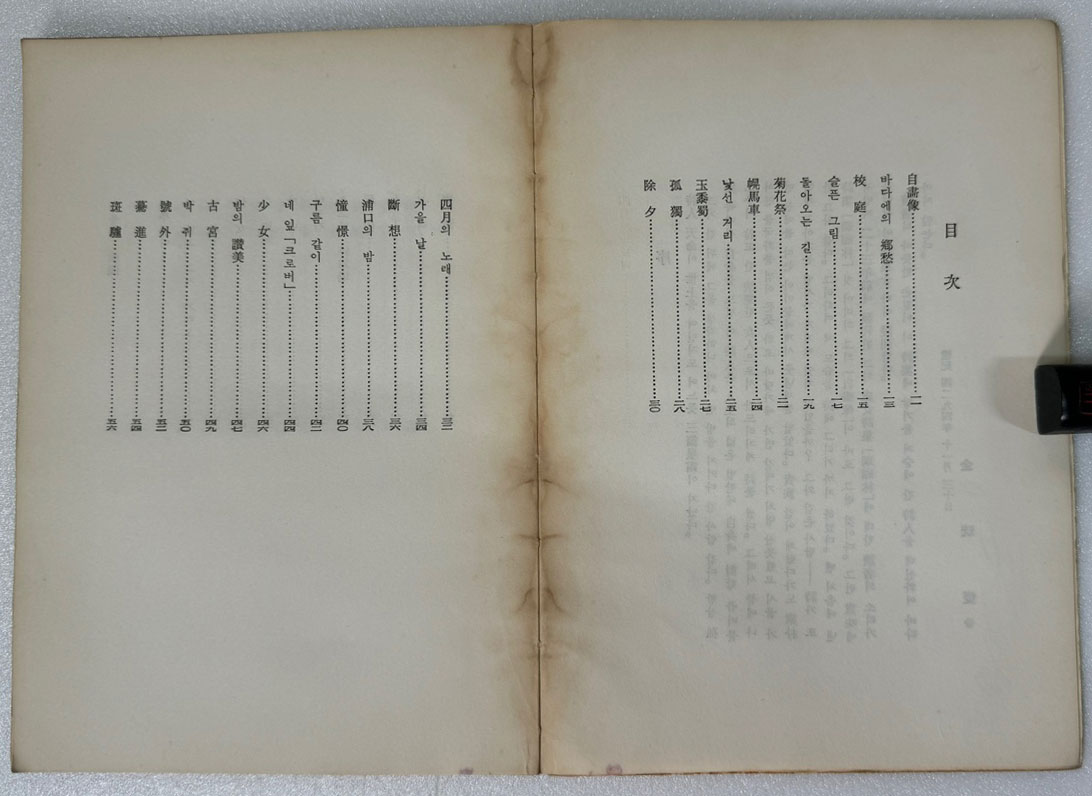 目 次
自畵像……一一
바다에의 鄕愁……一三
校 庭……一五
슬픈 그림……一七
돌아오는 길……一九
菊花祭……二一
幌馬車……二四
낯선 거리……二五
玉黍蜀……二七
孤 獨……二八
除 夕……三〇
四月의 노래……三二
가을 날……三四
斷 想……三六
浦口의 밤……三八
憧 憬……四〇
구름 같이……四二
네 잎「크로버」……四四
少 女……四六
밤의 讚美……四七
古 宮……四九
박 쥐……五〇
號 外……五二
驀 進……五四
斑 驢……五六